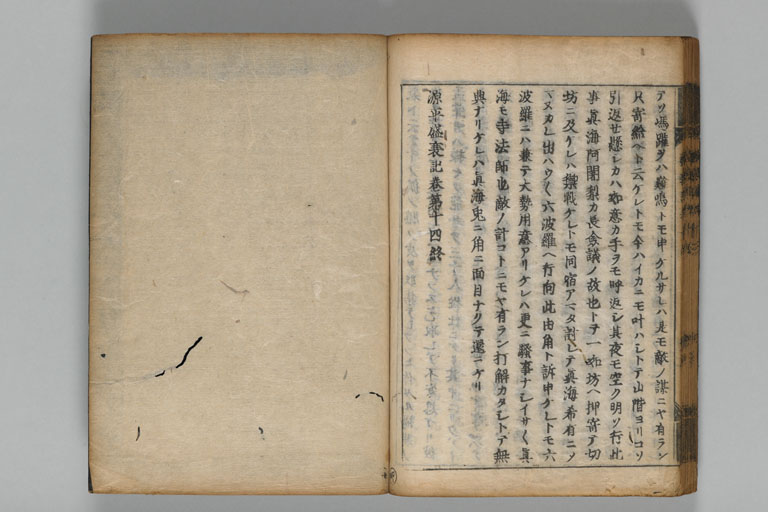 アソ嗚踏ヲハ鶏鳴トモ申ケルサレハ是モ敵ノ謀ニヤ有ラン
只寄給ヘト云ケレトモ今ハイカニモ叶ハシトテ山階ヨリコソ
引返セ懸シカハ如意カ手ヲモ呼返シ其夜モ空ク明ヌ行此
事真海阿闍梨カ長僉議ノ故也トテ一如坊ヘ押寄テ切
坊ニ及ケレハ禦戦ケレトモ同宿アマタ討レテ真海希有ニソ
ヽヌカレ出ハウ〱六波羅ヘ行向此由角ト訴申ケレトモ六
波羅ニハ兼テ大勢用意アリケレハ更ニ騒事ナシイサ〱真
海モ寺法師也敵ノ計コトニモヤ有ラン打解カタシトテ無
興ナリケレハ真海兎ニ角ニ面目ナクテ還ニケリ
源平盛衰記巻第十四終